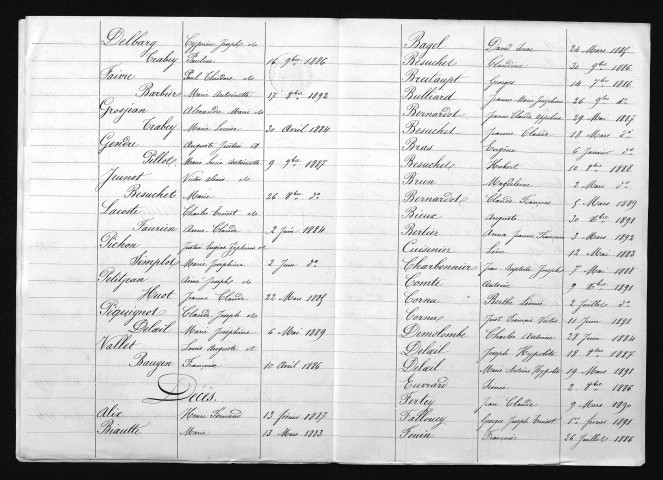 Delbarg Cyprien Joseph et
Crabey Pauline 16 9bre 1886
Faivre Paul Théodore et
Barbier Marie Antoinette 17 8bre 1892
Grosjean Alexandre Marie et
Crabey Marie Louise 30 Avril 1884
Gendre Auguste Justin et
Pillot Marie Louise Antoinette 9 9bre 1887
Jeunot Victor Alexis et
Besuchet Marie 26 8bre do
Lacoste Charles Ernest et
Taurien Anne Claude 2 Juin 1884
Pichon Justin Eugène Zéphirin et
Simplot Marie Joséphine 2 Juin do
Petitjean Aimé Joseph et
Huot Jeanne Claude 22 Mars 1885
Péquignot Claude Joseph et
Delail Marie Joséphine 6 Mai 1889
Vallet Louis Auguste et
Baugen Françoise 10 Avril 1886
Décès.
Alix Henri Fernand 13 février 1887
Biautte Marie 13 Mars 1883
Bagel David Isaac 24 Mars 1885
Besuchet Claudine 30 9bre 1886
Breitaupt Georges 14 7bre 1886
Bulliard Jeanne Marie Joséphine 26 9bre do
Bernardot Jeanne Claude Appoline 29 Mai 1887
Besuchet Jeanne Claude 18 Mars do
Bras Eugène 6 Janvier do
Besuchet Hubert 10 9bre 1888
Brun Magdeleine 2 Mars do
Bernardot Claude François 5 Mars 1889
Bieux Auguste 30 Xbre 1891
Bertier Anna Jeanne Françoise 3 Mars 1892
Cuisenier Léon 12 Mai 1883
Charbonnier Jean Baptiste Joseph 7 Mai 1888
Comte Antoine 9 Xbre 1891
Cornu Berthe Louise 2 Juillet do
Cornu Just François Victor 11 Juin 1892
Demolombe Charles Antoine 28 Juin 1884
Delail Joseph Hypolite 18 8bre 1887
Delail Marie Antoine Hypolite 19 Mars 1891
Euvrard 2 8bre 1886
Ferley Jean Claude 9 Mars 1890
Fallouey Georges Joseph Ernest 1er février 1891
Fouin Françoise 26 Juillet 1886